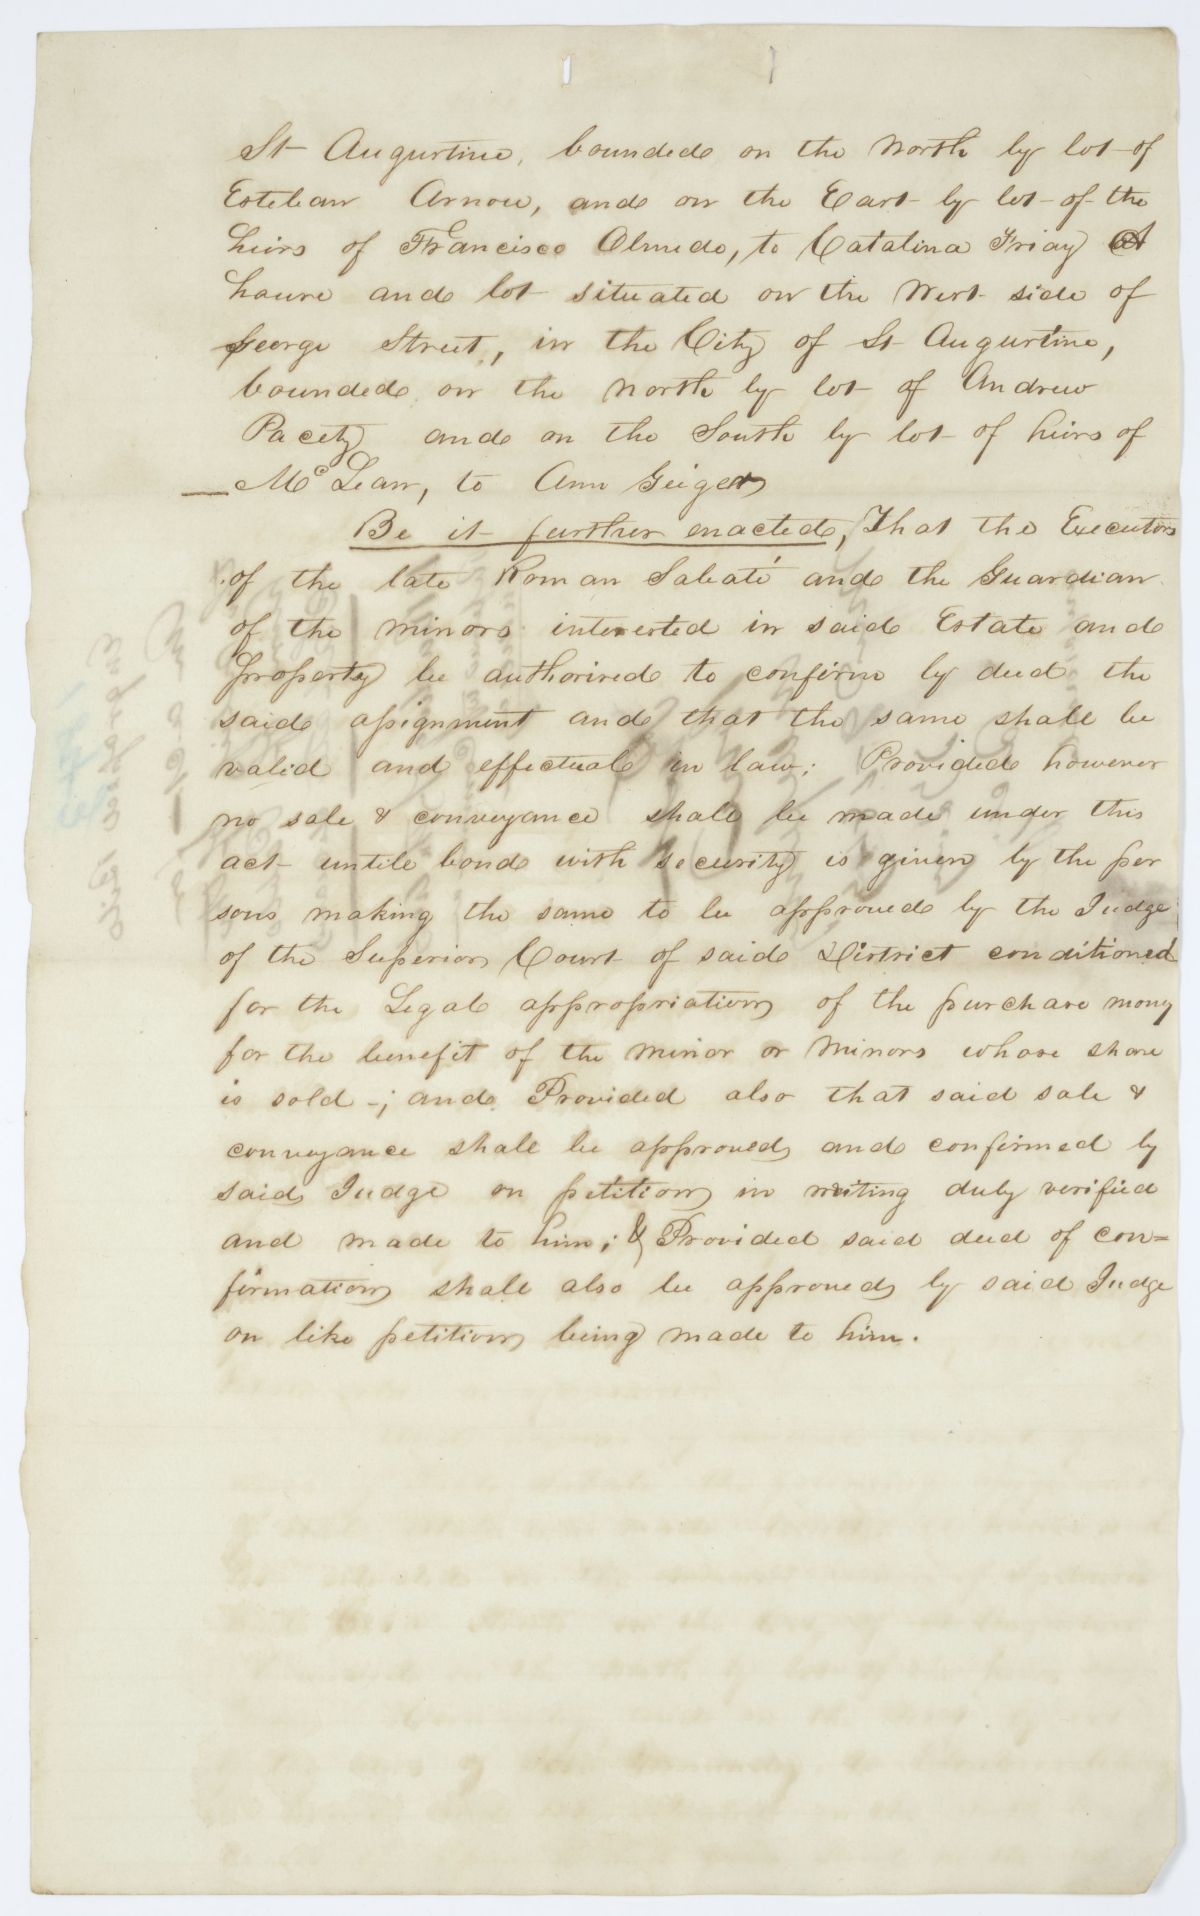 St Augustine, bounded on the North by lot of
Esteban Arnou, and on the East by lot of the
heirs of Francisco Olmedo, to Catalina Friay A
house and lot situated on the West side of
George Street, in the City of St Augustine,
bounded on the North by lot of Andrew
Pacety and on the South by lot of heirs of
McLean, to Ann Geiger
Be it further enacted, That the Executors
of the late Roman Sabaté and the Guardian
of the minors interested in said Estate and
Property be authorised to confirm by deed the
said assignment and that the same shall be
valid and effectual in law; Provided however
no sale & conveyance shall be made under this
act until bond with security is given by the per
sons making the same to be approved by the Judge
of the Superior Court of said District conditioned
for the Legal appropriation of the purchase money
for the benefit of the minor or minors whose share
is sold -; and Provided also that said sale &
conveyance shall be approved and confirmed by
said Judge on petition in writing duly verified
and made to him; & Provided said deed of con=
firmation shall also be approved by said Judge
on like petition being made to him.